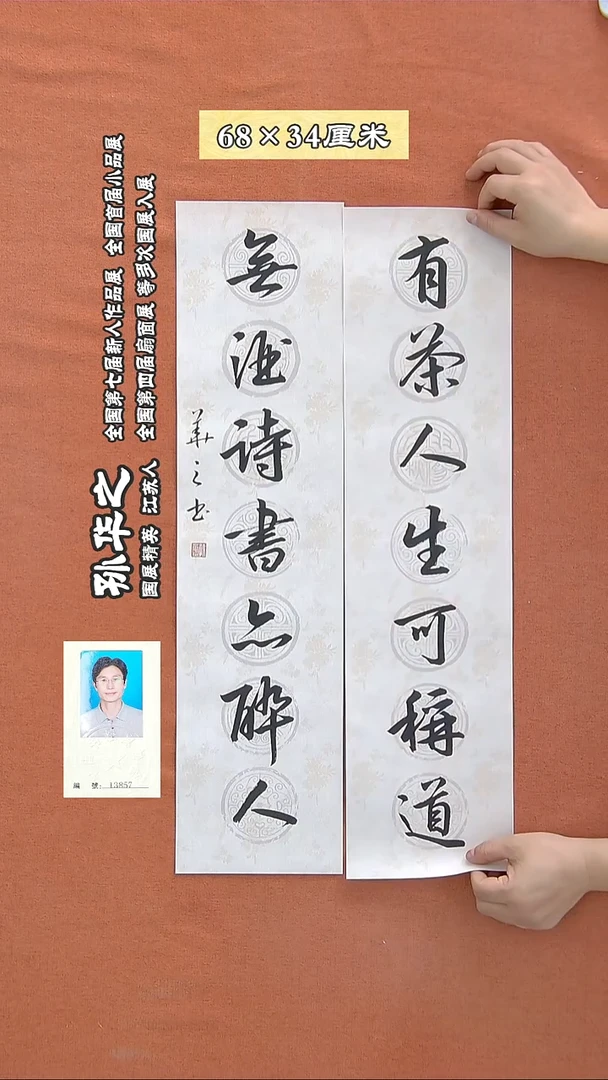 68×34厘米
有茶人生可稱道
無酒詩書亦醉人
華之书
孙华之
国展精英 江苏人
全国第七届新人作品展 全国首届小品展
全国第四届扇面展 等多次国展入展
編 號: 13857